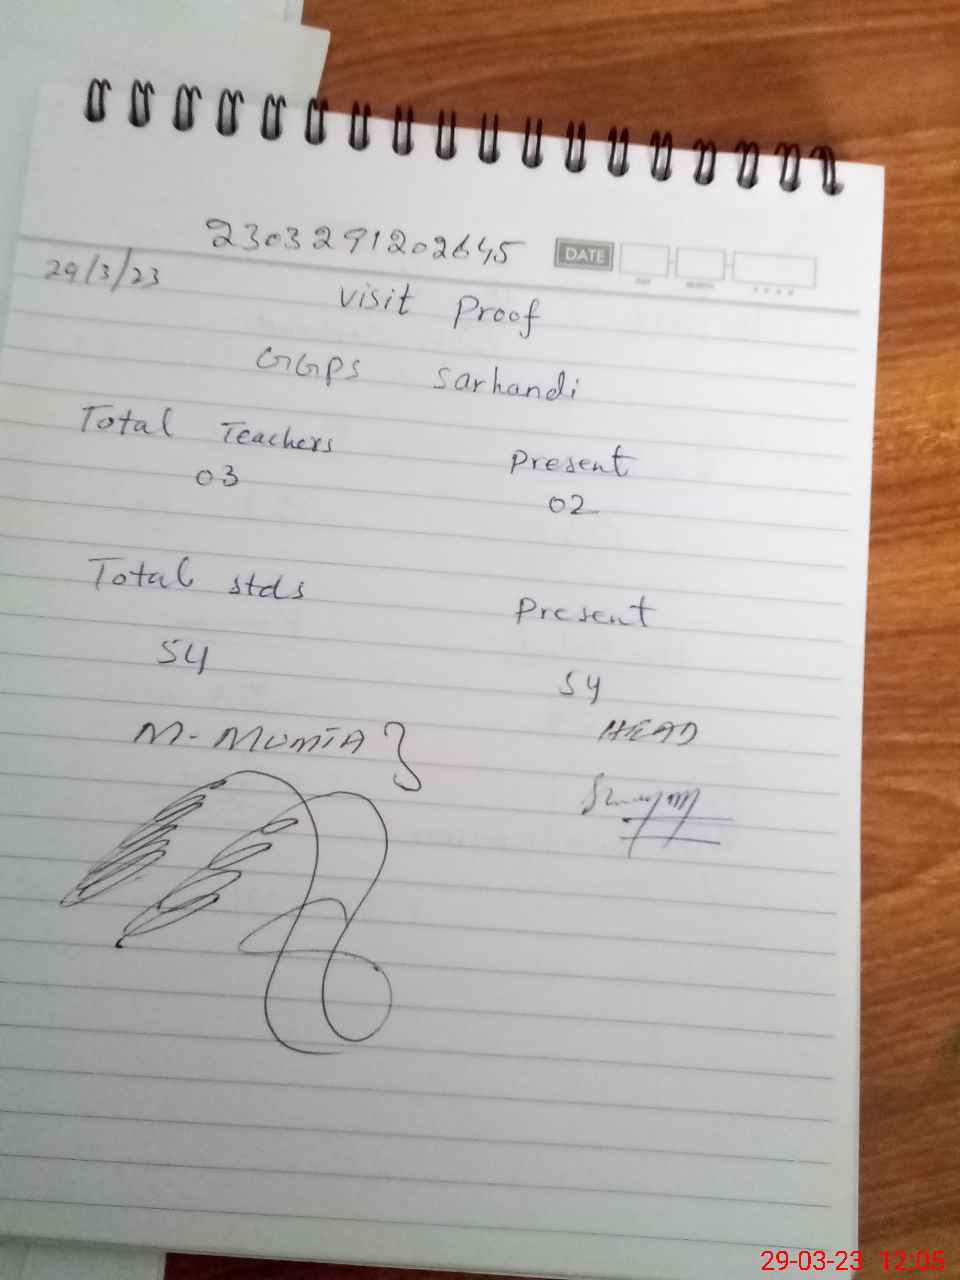 2303291202645
DATE
29/3/23
Visit Proof
GGPS Sarhandi
Total Teachers Present
03 02
Total stds Present
54 54
M. MUMTAZ
HEAD
29-03-23 12:05